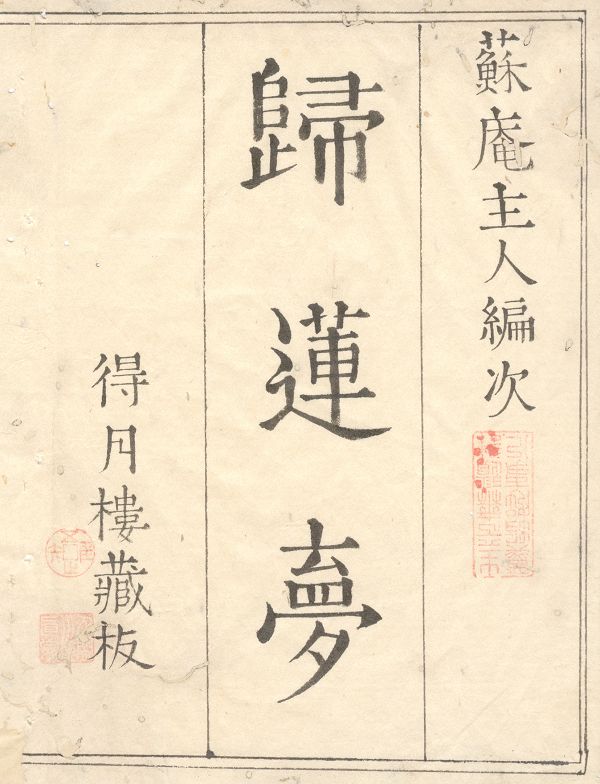 蘇庵主人編次
歸蓮夢
得月樓藏板